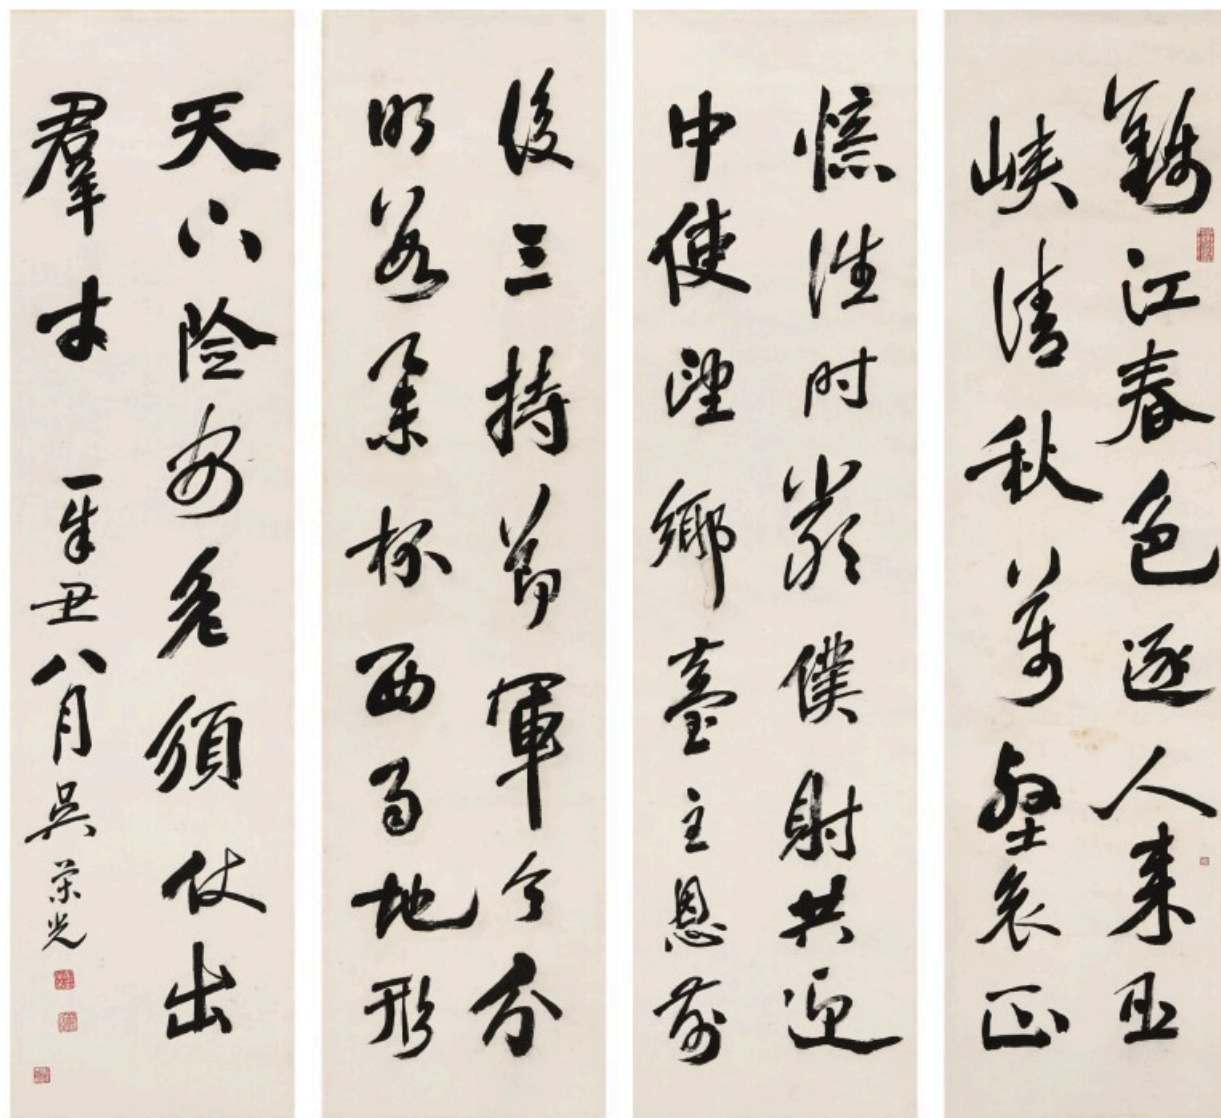 錦江春色逐人來巫
峽清秋萬壑哀正
憶往時嚴僕射共迎
中使望鄉臺主恩前
後三持節軍令分
明數舉杯西蜀地形
天下險安危須仗出
羣才 辛丑八月吳榮光